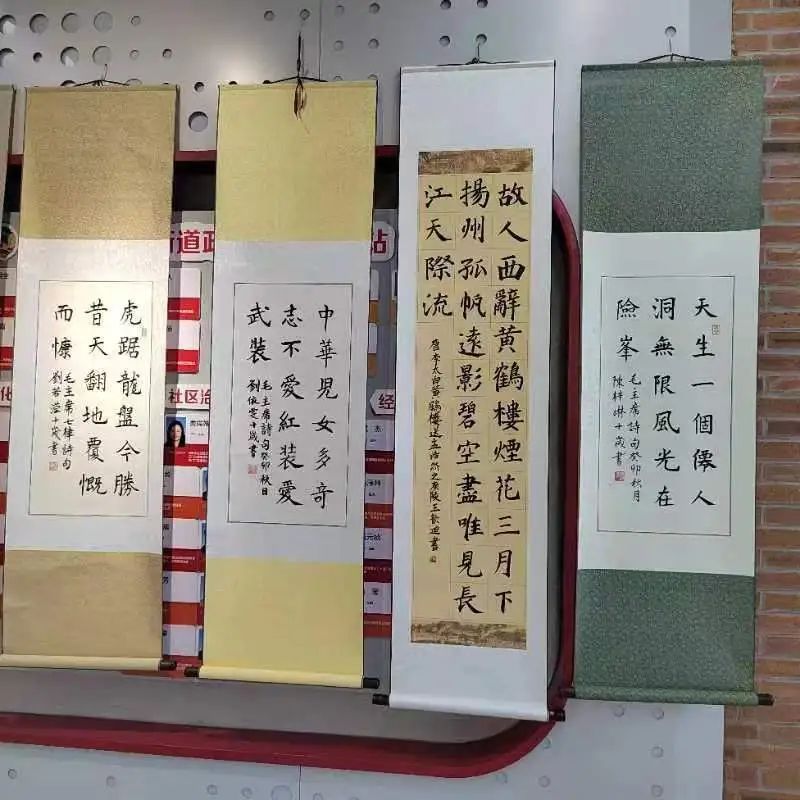 天生一個僊人
洞無限風光在
險峯
毛主席詩句癸卯秋月
陳梓琳十歲書
故人西辭黄鶴樓煙花三月下
揚州孤帆遠影碧空盡唯見長
江天際流
唐李太白黄鶴樓送孟浩然之廣陵王歆迪書
中華兒女多奇
志不愛紅裝愛
武裝
毛主席詩句癸卯秋日
劉依雯十歲書
虎踞龍盤今勝
昔天翻地覆慨
而慷
毛主席七律詩句
劉若十歲書
道政
站
社区治
经
化